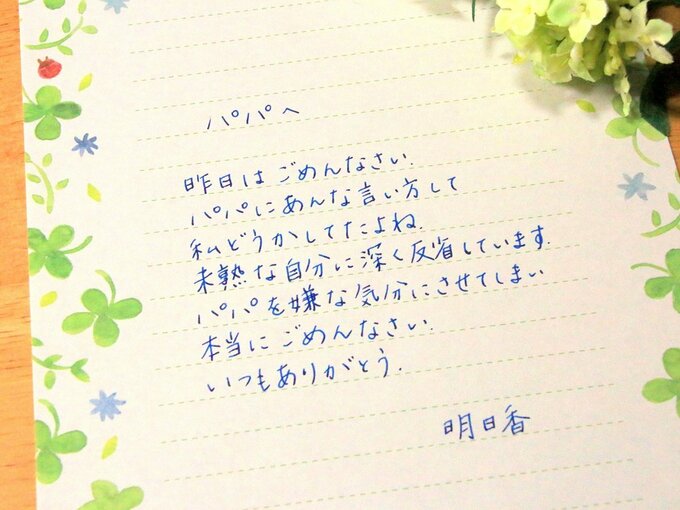 パパへ
昨日はごめんなさい.
パパにあんな言い方して
私どうかしてたよね.
未熟な自分に深く反省しています.
パパを嫌な気分にさせてしまい
本当にごめんなさい.
いつもありがとう.
明日香